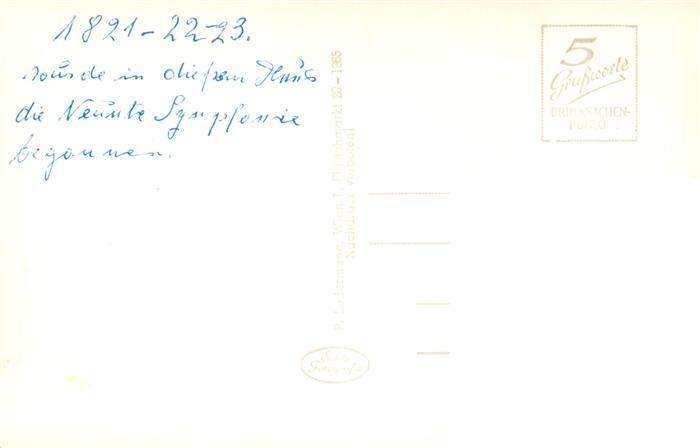 1821-22-23.
wurde in diesem Haus
die Neunte Symphonie
begonnen.
5
Grußworte
DRUCKSACHEN-
PORTO
P. Ledermann, Wien, I., Fleischmarkt 20 - 1965
Nachdruck verboten!
Echte
Fotografie